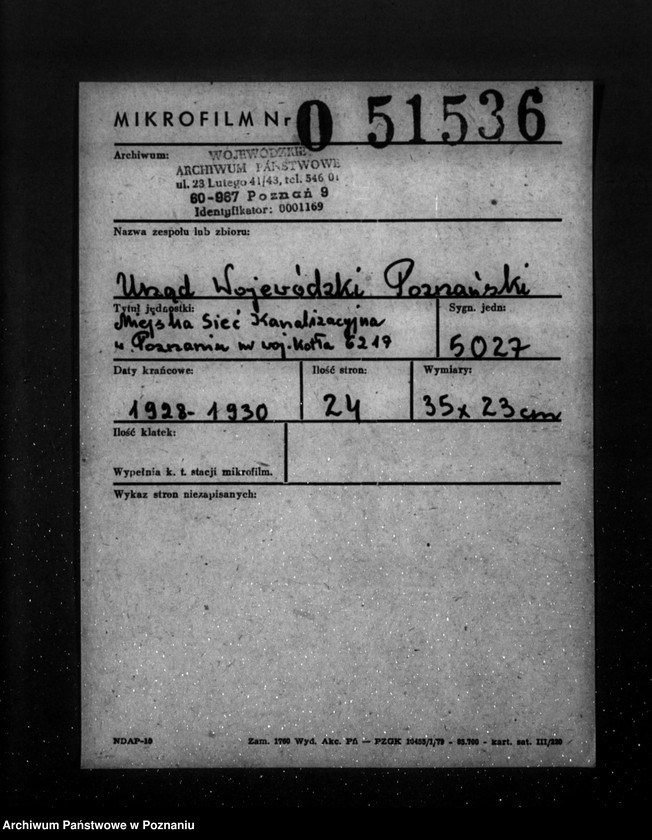 MIKROFILM Nr 0 51536
Archiwum:
WOJEWÓDZKIE
ARCHIWUM PAŃSTWOWE
ul. 23 Lutego 41/43, tel. 546 01
60-967 Poznań 9
Identyfikator: 0001169
Nazwa zespołu lub zbioru:
Urząd Wojewódzki Poznański
Tytuł jednostki:
Miejska Sieć Kanalizacyjna
w Poznaniu nr woj. Kotła 6219
Sygn. jedn:
5027
Daty krańcowe:
1928-1930
Ilość stron:
24
Wymiary:
35x23cm
Ilość klatek:
Wypełnia k. t. stacji mikrofilm.
Wykaz stron niezapisanych:
NDAP-10
Zam. 1760 Wyd. Akc. Pń — PZGK 10453/1/79 - 85.700 - kart. sat. III/220
Archiwum Państwowe w Poznaniu